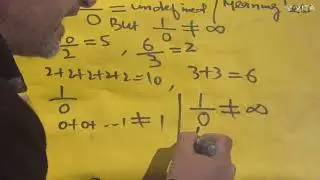 /0 = undefined / Meaning
But 1/0 ≠ ∞
0/2 = 5 , 6/3 = 2
2+2+2+2+2=10 , 3+3=6
1/0
0+0+ ...1 ≠ 1
1/0 ≠ ∞